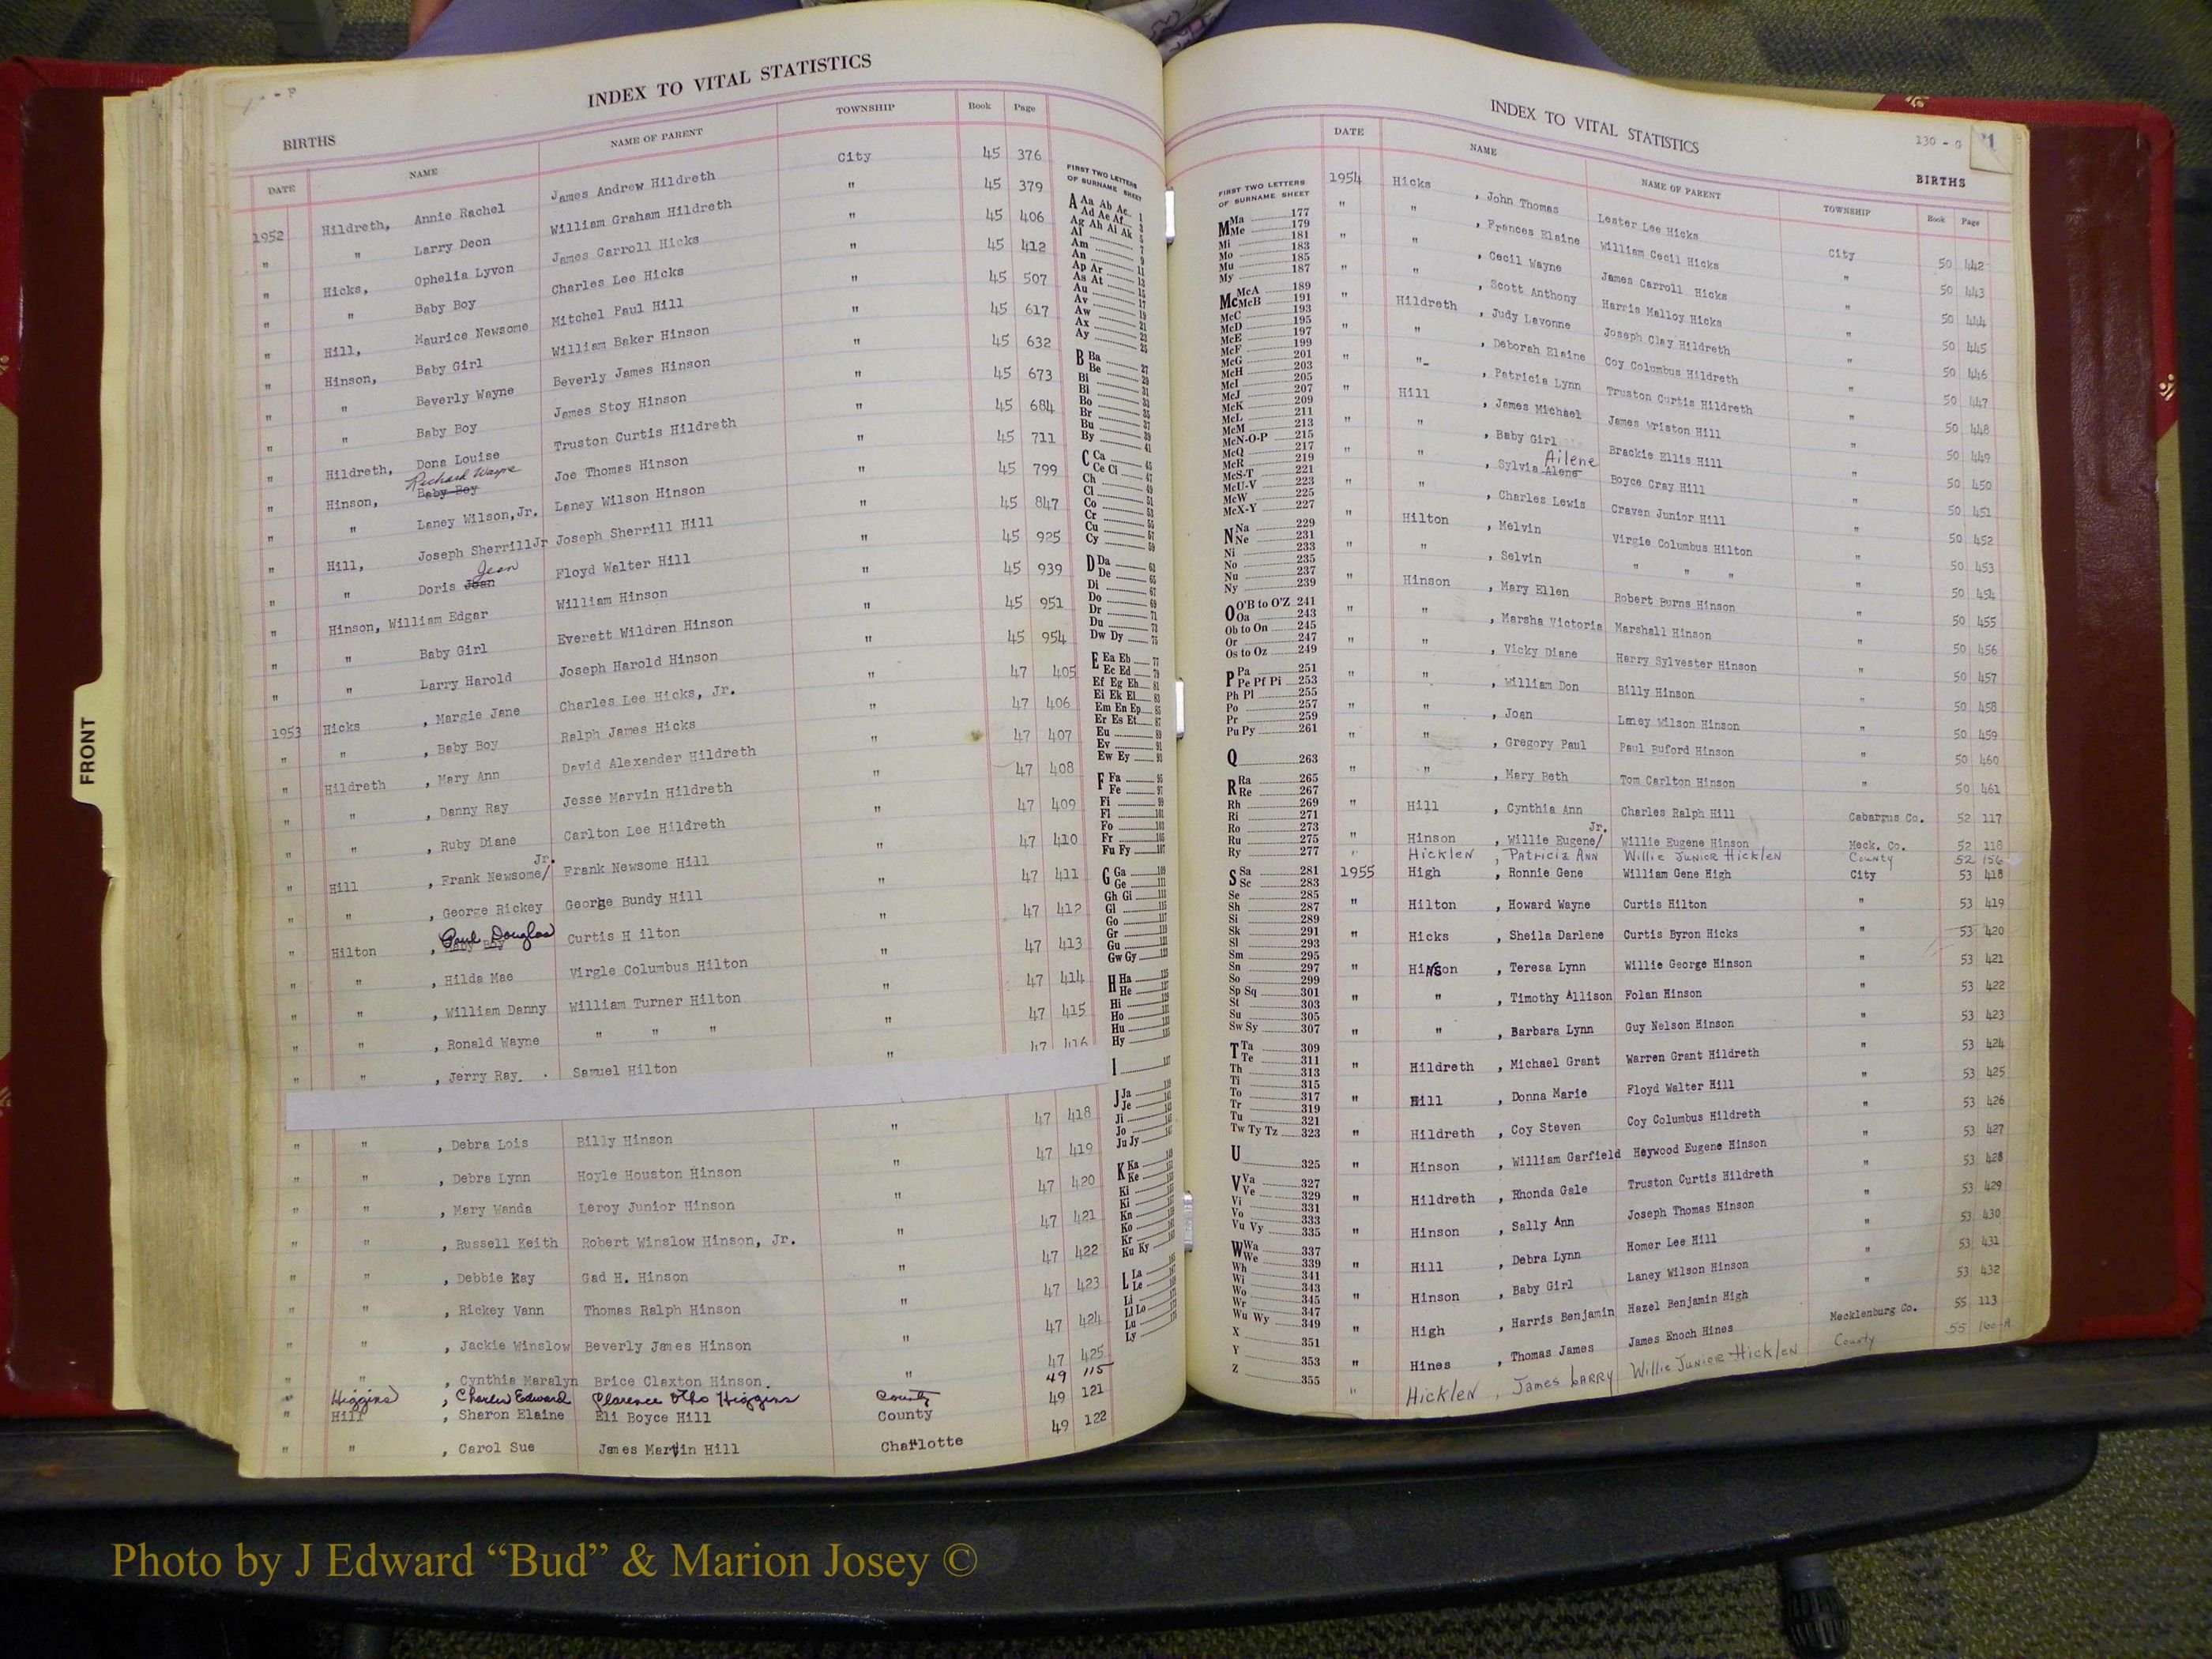 INDEX TO VITAL STATISTICS
BIRTHS
DATE NAME NAME OF PARENT TOWNSHIP Book Page
1952 Hildreth, Annie Rachel James Andrew Hildreth City 45 376
" " Larry Deon William Graham Hildreth " 45 379
" Hicks, Ophelia Lyvon James Carroll Hicks " 45 406
" " Baby Boy Charles Lee Hicks " 45 412
" Hill, Maurice Newsome Mitchel Paul Hill " 45 507
" Hinson, Baby Girl William Baker Hinson " 45 617
" " Beverly Wayne Beverly James Hinson " 45 632
" " Baby Boy James Stoy Hinson " 45 673
" Hildreth, Dona Louise Truston Curtis Hildreth " 45 684
Richard Wayne
" Hinson, Baby Boy Joe Thomas Hinson " 45 711
" " Laney Wilson,Jr. Laney Wilson Hinson " 45 799
" Hill, Joseph SherrillJr Joseph Sherrill Hill " 45 847
Jean
" " Doris Joan Floyd Walter Hill " 45 925
" Hinson, William Edgar William Hinson " 45 939
" " Baby Girl Everett Wildren Hinson " 45 951
" " Larry Harold Joseph Harold Hinson " 45 954
1953 Hicks , Margie Jane Charles Lee Hicks, Jr. " 47 405
" " , Baby Boy Ralph James Hicks " 47 406
" Hildreth , Mary Ann David Alexander Hildreth " 47 407
" " , Danny Ray Jesse Marvin Hildreth " 47 408
" " , Ruby Diane Carlton Lee Hildreth " 47 409
Jr.
" Hill , Frank Newsome/ Frank Newsome Hill " 47 410
" " , George Rickey George Bundy Hill " 47 411
" Hilton , Paul Douglas Curtis H ilton " 47 412
" " , Hilda Mae Virgle Columbus Hilton " 47 413
" " , William Danny William Turner Hilton " 47 414
" " , Ronald Wayne " " " " 47 415
" " , Jerry Ray. Samuel Hilton " 47 416
" " , Debra Lois Billy Hinson " 47 418
" " , Debra Lynn Hoyle Houston Hinson " 47 419
" " , Mary Wanda Leroy Junior Hinson " 47 420
" " , Russell Keith Robert Winslow Hinson, Jr. " 47 421
" " , Debbie Kay Gad H. Hinson " 47 422
" " , Rickey Vann Thomas Ralph Hinson " 47 423
" " , Jackie Winslow Beverly James Hinson " 47 424
" " , Cynthia Maralyn Brice Claxton Hinson. " 47 425
" Higgins , Charles Edward Clarence Otho Higgins County 49 115
" Hill , Sharon Elaine Eli Boyce Hill County 49 121
" " , Carol Sue James Martin Hill Charlotte 49 122
FRONT
FIRST TWO LETTERS
OF SURNAME SHEET
A Aa Ab Ac 1
Ad Ae Af 3
Ag Ah Ai Ak 5
Al 7
Am 9
An 11
Ap Ar 13
As At 15
Au 17
Av 19
Aw 21
Ax 23
Ay 25
B Ba 27
Be 29
Bi 31
Bl 33
Bo 35
Br 37
Bu 39
By 41
C Ca 45
Ce Ci 47
Ch 49
Cl 51
Co 53
Cr 55
Cu 57
Cy 59
D Da 63
De 65
Di 67
Do 69
Dr 71
Du 73
Dw Dy 75
E Ea Eb 77
Ec Ed 79
Ef Eg Eh 81
Ei Ek El 83
Em En Ep 85
Er Es Et 87
Eu 89
Ev 91
Ew Ey 93
F Fa 95
Fe 97
Fi 99
Fl 101
Fo 103
Fr 105
Fu Fy 107
G Ga 109
Ge 111
Gh Gi 113
Gl 115
Go 117
Gr 119
Gu 121
Gw Gy 123
H Ha 125
He 127
Hi 129
Ho 131
Hu 133
Hy 135
I 137
J Ja
Je
Ji
Jo
Ju Jy
K Ka
Ke
Ki
Kl
Kn
Ko
Kr
Ku Ky
L La
Le
Li
Ll Lo
Lu
Ly
INDEX TO VITAL STATISTICS
130 - G
BIRTHS
FIRST TWO LETTERS
OF SURNAME SHEET
M Ma 177
Me 179
Mi 181
Mo 183
Mu 185
My 187
Mc McA 189
McB 191
McC 193
McD 195
McE 197
McF 199
McG 201
McH 203
McI 205
McJ 207
McK 209
McL 211
McM 213
McN-O-P 215
McQ 217
McR 219
McS-T 221
McU-V 223
McW 225
McX-Y 227
N Na 229
Ne 231
Ni 233
No 235
Nu 237
Ny 239
O O'B to O'Z 241
Oa 243
Ob to On 245
Or 247
Os to Oz 249
P Pa 251
Pe Pf Pi 253
Ph Pl 255
Po 257
Pr 259
Pu Py 261
Q 263
R Ra 265
Re 267
Rh 269
Ri 271
Ro 273
Ru 275
Ry 277
S Sa 281
Sc 283
Se 285
Sh 287
Si 289
Sk 291
Sl 293
Sm 295
Sn 297
So 299
Sp Sq 301
St 303
Su 305
Sw Sy 307
T Ta 309
Te 311
Th 313
Ti 315
To 317
Tr 319
Tu 321
Tw Ty Tz 323
U 325
V Va 327
Ve 329
Vi 331
Vo 333
Vu Vy 335
W Wa 337
We 339
Wh 341
Wi 343
Wo 345
Wr 347
Wu Wy 349
X 351
Y 353
Z 355
DATE NAME NAME OF PARENT TOWNSHIP Book Page
1954 Hicks , John Thomas Lester Lee Hicks City 50 442
" " , Frances Elaine William Cecil Hicks " 50 443
" " , Cecil Wayne James Carroll Hicks " 50 444
" " , Scott Anthony Harris Malloy Hicks " 50 445
" Hildreth , Judy Lavonne Joseph Clay Hildreth " 50 446
" " , Deborah Elaine Coy Columbus Hildreth " 50 447
" "- , Patricia Lynn Truston Curtis Hildreth " 50 448
" Hill , James Michael James Wriston Hill " 50 449
" " , Baby Girl Brackie Ellis Hill " 50 450
Ailene
" " , Sylvia Alene Boyce Cray Hill " 50 451
" " , Charles Lewis Craven Junior Hill " 50 452
" Hilton , Melvin Virgie Columbus Hilton " 50 453
" " , Selvin " " " 50 454
" Hinson , Mary Ellen Robert Burns Hinson 50 455
" " , Marsha Victoria Marshall Hinson " 50 456
" " , Vicky Diane Harry Sylvester Hinson " 50 457
" " , William Don Billy Hinson " 50 458
" " , Joan Laney Wilson Hinson " 50 459
" " , Gregory Paul Paul Buford Hinson " 50 460
" " , Mary Beth Tom Carlton Hinson " 50 461
" Hill , Cynthia Ann Charles Ralph Hill Cabarrus Co. 52 117
Jr.
" Hinson , Willie Eugene/ Willie Eugene Hinson Meck. Co. 52 118
" Hicklen , Patricia Ann Willie Junior Hicklen County 52 156
1955 High , Ronnie Gene William Gene High City 53 418
" Hilton , Howard Wayne Curtis Hilton " 53 419
" Hicks , Sheila Darlene Curtis Byron Hicks " 53 420
" Hinson , Teresa Lynn Willie George Hinson " 53 421
" " , Timothy Allison Folan Hinson " 53 422
" " , Barbara Lynn Guy Nelson Hinson " 53 423
" Hildreth , Michael Grant Warren Grant Hildreth " 53 424
" Hill , Donna Marie Floyd Walter Hill " 53 425
" Hildreth , Coy Steven Coy Columbus Hildreth " 53 426
" Hinson , William Garfield Heywood Eugene Hinson " 53 427
" Hildreth , Rhonda Gale Truston Curtis Hildreth " 53 428
" Hinson , Sally Ann Joseph Thomas Hinson " 53 429
" Hill , Debra Lynn Homer Lee Hill " 53 430
" Hinson , Baby Girl Laney Wilson Hinson " 53 431
" High , Harris Benjamin Hazel Benjamin High " 53 432
" Hines , Thomas James James Enoch Hines Mecklenburg Co. 55 113
" Hicklen , James Larry Willie Junior Hicklen County 55 160-A
Photo by J Edward “Bud” & Marion Josey ©